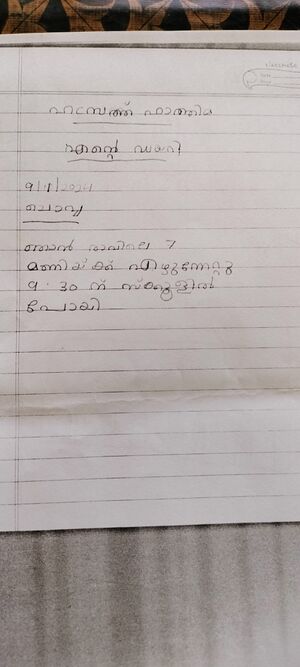 ഫാത്തിമ
എന്റെ ഡയറി
9/1/2024
ചൊവ്വ
ഞാൻ രാവിലെ 7
മണിയ്ക്ക് എഴുന്നേറ്റു
9.30 ന് സ്കൂളിൽ
പോയി